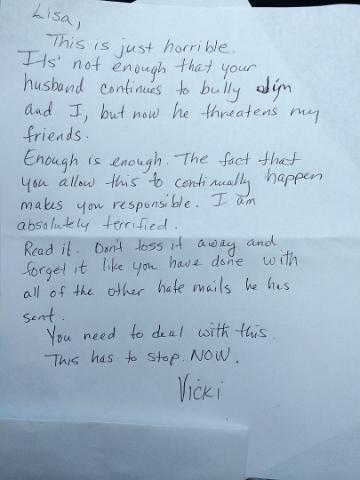 Lisa,
This is just horrible.
Its' not enough that your
husband continues to bully
and I, but now he threatens my
friends.
Enough is enough. The fact that
you allow this to continually happen
makes you responsible. I am
absolutely terrified.
Read it. Don't toss it away and
forget it like you have done with
all of the other hate mails he has
sent.
You need to deal with this.
This has to stop. NOW.
Vicki